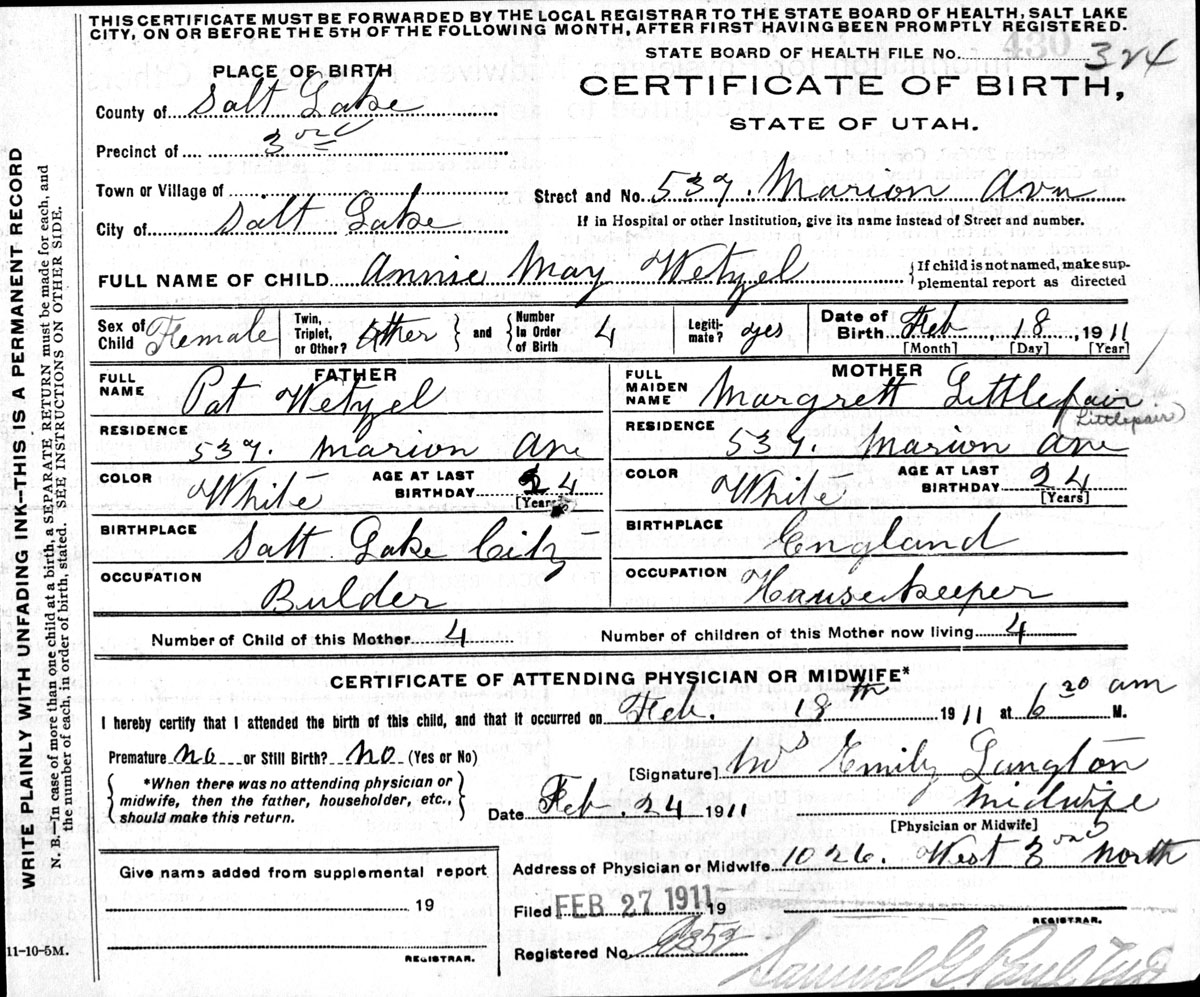 THIS CERTIFICATE MUST BE FORWARDED BY THE LOCAL REGISTRAR TO THE STATE BOARD OF HEALTH, SALT LAKE
CITY, ON OR BEFORE THE 5TH OF THE FOLLOWING MONTH, AFTER FIRST HAVING BEEN PROMPTLY REGISTERED.
STATE BOARD OF HEALTH FILE No. 430 324
PLACE OF BIRTH
CERTIFICATE OF BIRTH,
STATE OF UTAH.
County of Salt Lake
Precinct of 3rd
Town or Village of
Street and No. 537. Marion Avn
City of Salt Lake
If in Hospital or other Institution, give its name instead of Street and number.
FULL NAME OF CHILD Annie May Wetzel
{If child is not named, make sup-
plemental report as directed
Sex of Child Female
Twin, Triplet, or Other? Other } and { Number In Order of Birth 4
Legiti-mate? yes
Date of Birth Feb, 18, 1911
[Month] [Day] [Year]
FATHER
FULL NAME Pat Wetzel
RESIDENCE 537. Marion Ave
COLOR White AGE AT LAST BIRTHDAY 24
[Years]
BIRTHPLACE Salt Lake City
OCCUPATION Bulder
MOTHER
FULL MAIDEN NAME Margrett Littlefair
(Littlepair)
RESIDENCE 537. Marion Ave
COLOR White AGE AT LAST BIRTHDAY 24
[Years]
BIRTHPLACE England
OCCUPATION Hausekeeper
Number of Child of this Mother 4 Number of children of this Mother now living 4
CERTIFICATE OF ATTENDING PHYSICIAN OR MIDWIFE*
I hereby certify that I attended the birth of this child, and that it occurred on Feb. 18th 1911 at 6 20 am M.
Premature no or Still Birth? No (Yes or No)
{ *When there was no attending physician or
midwife, then the father, householder, etc.,
should make this return. }
[Signature] Ms Emily Langton
Date Feb. 24 1911 Midwife
[Physician or Midwife]
Address of Physician or Midwife 1026. West 3rd North
Give name added from supplemental report
19
REGISTRAR.
Filed FEB 27 1911 19
REGISTRAR.
Registered No.
Samuel G. Paul, M.D.
WRITE PLAINLY WITH UNFADING INK—THIS IS A PERMANENT RECORD
N. B.—In case of more than one child at a birth, a SEPARATE RETURN must be made for each, and
the number of each, in order of birth, stated. SEE INSTRUCTIONS ON OTHER SIDE.
11-10-5M.